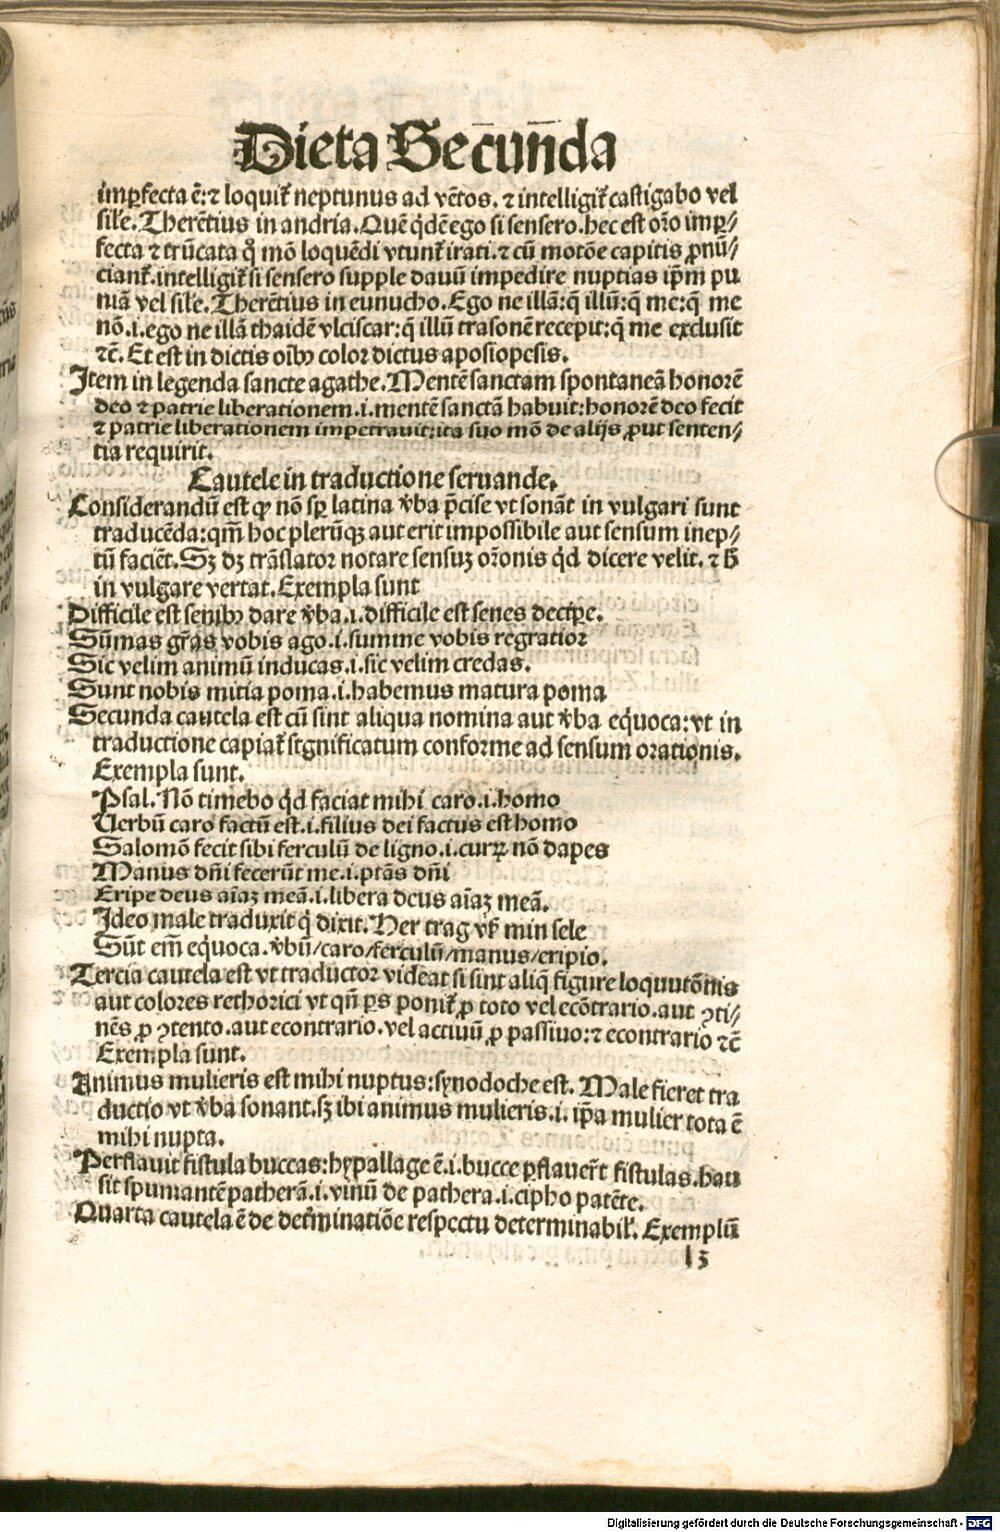 Dieta Secunda
imꝑfecta ē:⁊ loquit̄ neptunus ad vētos. ⁊ intelligit̄ castigabo vel
sile̅. Therētius in andria. Quē q̇dē ego si sensero. hec est oro̅ imꝑ/
fecta ⁊ trūcata q̄ mō loquēdi vtunt̄ irati. ⁊ cū motōe capitis ꝓnū/
ciant̄. intelligit̄ si sensero supple dauū impedire nuptias ip̄m pu
niā vel sile̅. Therētius in eunucho. Ego ne illā:q̄ illū:q̄ me:q̄ me
nō.i.ego ne illā thaidē vlciscar:q̄ illū trasonē recepit:q̄ me exclusit
⁊c̄. Et est in dictis oībꝰ color dictus aposiopesis.
Item in legenda sancte agathe. Mentē sanctam spontaneā honorē
deo ⁊ patrie liberationem.i.mentē sanctā habuit:honorē deo fecit
⁊ patrie liberationem impetrauit:ita suo mō de alijs ꝓut senten/
tia requirit.
Cautele in traductione seruande.
Considerandū est ꝙ nō sp̄ latina v̄ba p̄cise vt sonāt in vulgari sunt
traducēda:qm̄ hoc plerūqꝫ aut erit impossibile aut sensum inep/
tū faciēt. Sꝫ dꝫ trāslator notare sensuꝫ oro̅nis q̇d dicere velit. ⁊ h̄
in vulgare vertat. Exempla sunt
Difficile est senibꝰ dare v̄ba.i.difficile est senes decipe̅.
Sūmas gr̄as vobis ago.i.summe vobis regratior
Sic velim animū inducas.i.sic velim credas.
Sunt nobis mitia poma.i.habemus matura poma
Secunda cautela est cū sint aliqua nomina aut v̄ba eq̇uoca:vt in
traductione capiat̄ significatum conforme ad sensum orationis.
Exempla sunt.
Psal. Nō timebo q̇d faciat mihi caro.i.homo
Uerbū caro factū est.i.filius dei factus est homo
Salomō fecit sibi ferculū de ligno.i.currꝫ nō dapes
Manus dn̄i fecerūt me.i.ptās dn̄i
Eripe deus aīaꝫ meā.i.libera deus aīaꝫ meā.
Ideo male traduxit q̇ dixit. Her trag vß min sele
Sūt em̄ eq̇uoca. v̄bū/caro/ferculū/manus/eripio.
Tercia cautela est vt traductor videat si sint aliq̄ figure loquutōnis
aut colores rethorici vt qn̄ ꝑs ponit̄ ꝓ toto vel ecōtrario. aut ꝯti/
nēs ꝓ ꝯtento. aut econtrario. vel actiuū ꝓ passiuo:⁊ econtrario ⁊c̄
Exempla sunt.
Animus mulieris est mihi nuptus:synodoche est. Male fieret tra
ductio vt v̄ba sonant. sꝫ ibi animus mulieris.i.ip̄a mulier tota ē
mihi nupta.
Perflauit fistula buccas:hypallage ē.i.bucce ꝑflauer̄t fistulas. hau
sit spumantē patherā.i.vinū de pathera.i.cipho patēte.
Quarta cautela ē de det̄minatiōe respectu determinabil̄. Exemplū
l 3
Digitalisierung gefördert durch die Deutsche Forschungsgemeinschaft - DFG